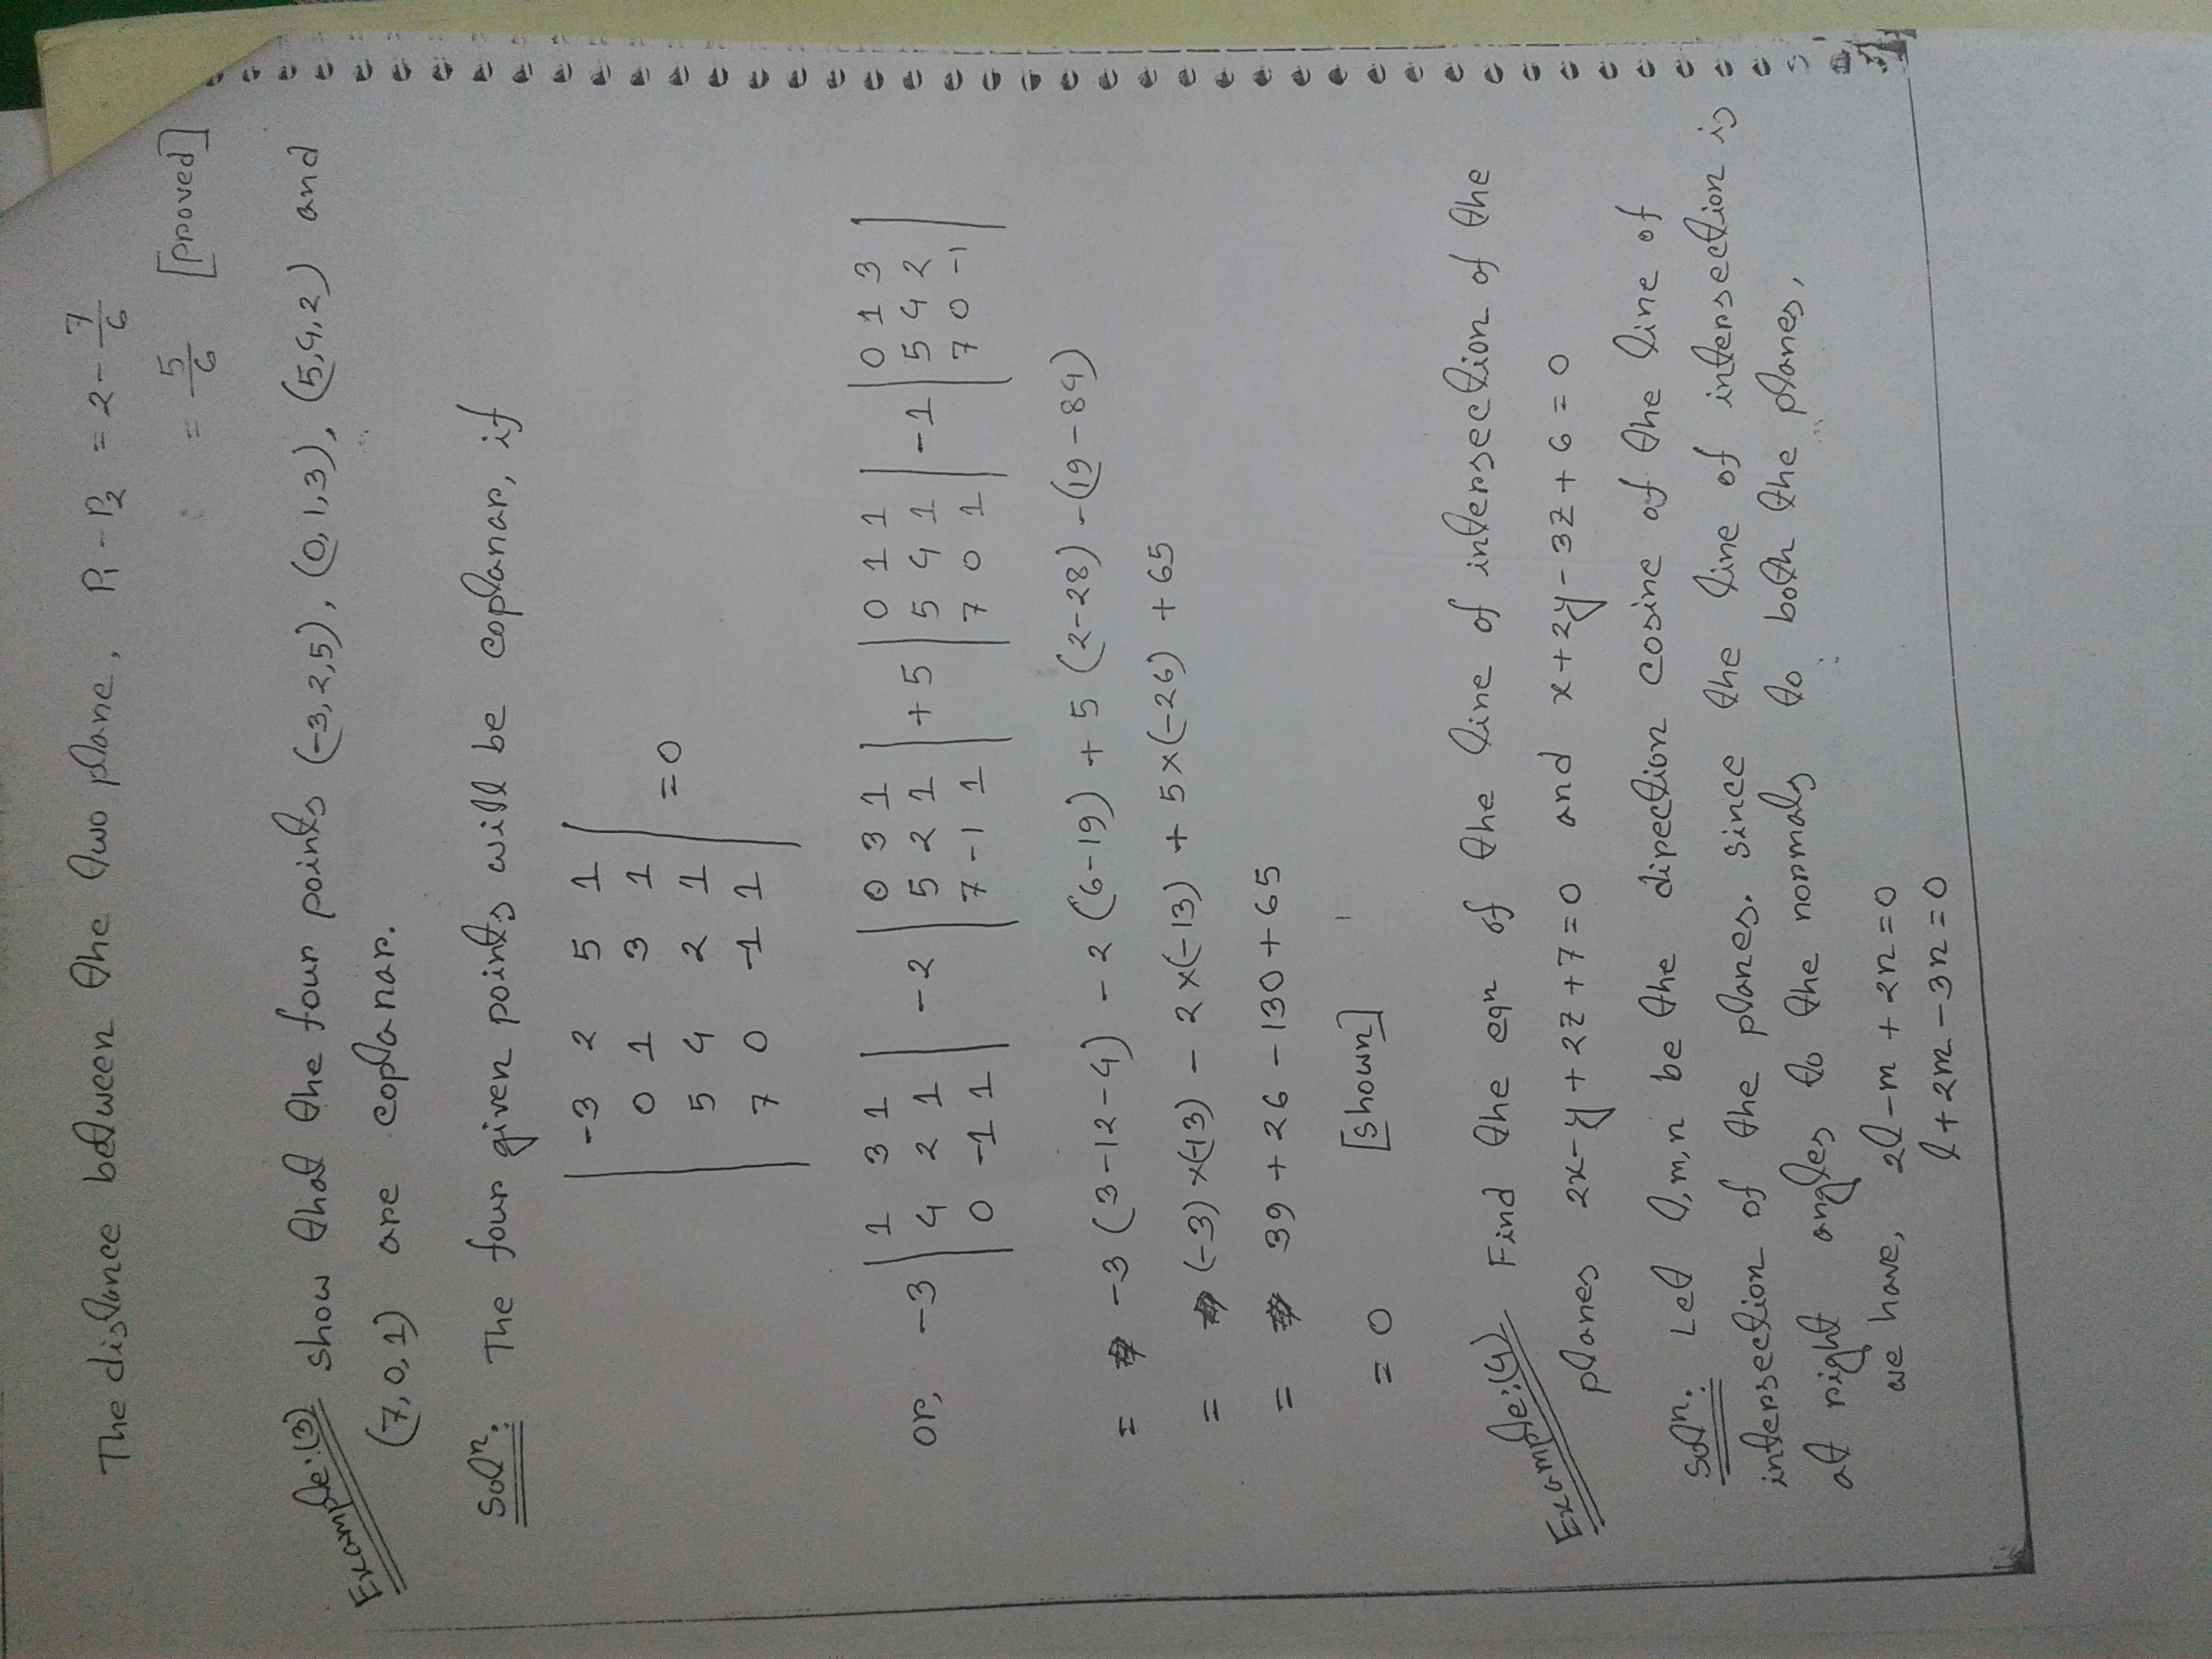 The distance between the two plane, P₁ - P₂ = 2 - 7/6
= 5/6 [proved]
Example:(3) show that the four points (-3,2,5), (0,1,3), (5,4,2) and
(7,0,1) are coplanar.
Solⁿ: The four given points will be coplanar, if
| -3 2 5 1 |
| 0 1 3 1 |
| 5 4 2 1 | = 0
| 7 0 -1 1 |
or, -3 | 1 3 1 ; 4 2 1 ; 0 -1 1 | -2 | 0 3 1 ; 5 2 1 ; 7 -1 1 | +5 | 0 1 1 ; 5 4 1 ; 7 0 1 | -1 | 0 1 3 ; 5 4 2 ; 7 0 -1 |
= -3 (3-12-4) - 2 (6-19) + 5 (2-28) - (19-84)
= (-3)×(-13) - 2×(-13) + 5×(-26) + 65
= 39 + 26 - 130 + 65
= 0 [shown]
Example:(4) Find the eqⁿ of the line of intersection of the
planes 2x-y+2z+7=0 and x+2y-3z+6=0
Solⁿ: Let l,m,n be the direction cosine of the line of
intersection of the planes. since the line of intersection is
at right angles to the normals to both the planes,
we have, 2l-m+2n=0
l+2m-3n=0